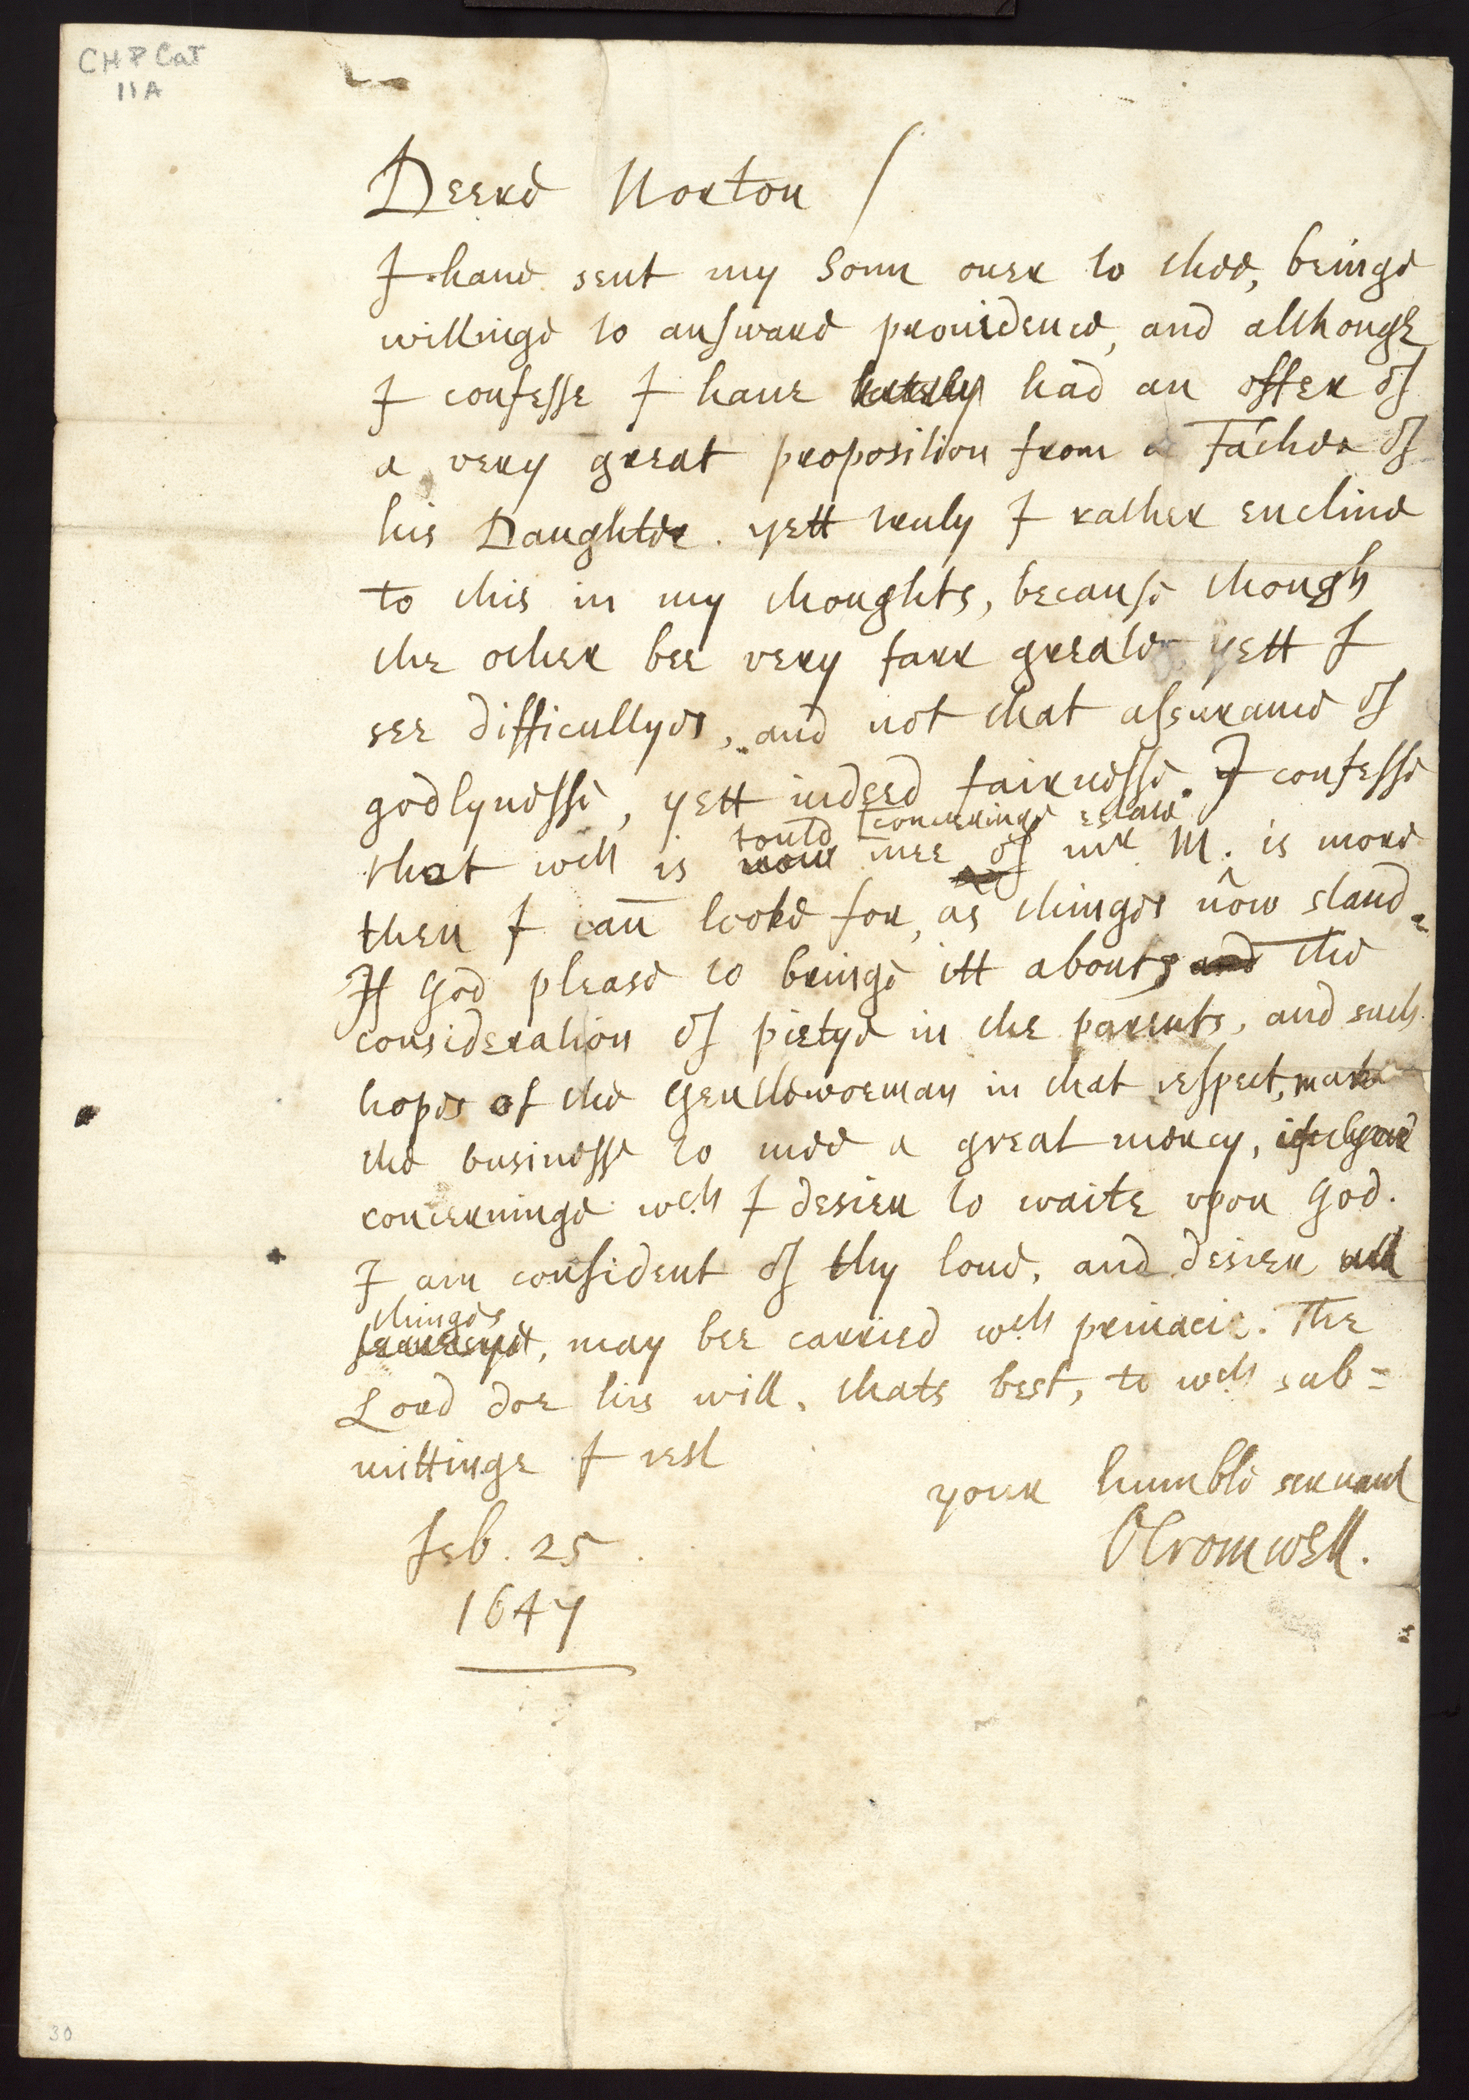 CHP Cat
11A
Deere Norton /
I haue sent my Sonn ouer to thee, beinge
willinge to answare prouidence, and although
I confesse I haue lately had an offer of
a very great proposition from a Father of
his Daughter. yett truly I rather encline
to this in my thoughts, because though
the other bee very farr greater yett I
see difficultyes, and not that assurance of
godlynesse, yett indeed fairnesse. I confesse
tould concerninge estate
that wch is now mee of mr M. is more
then I cann looke for, as thinges now stand.
If God please to bringe itt about, and the
consideration of pietye in the parents, and such
hopes of the Gentlewoeman in that respect, make
the businesse to mee a great mercy,
concerninge wch I desier to waite vpon God.
I am confident of thy loue, and desier all
thinges
may bee carried wth priuacie. The
Lord doe his will, thats best, to wch sub=
mittinge I rest
your humble seruant
O Cromwell.
Feb. 25
1647
30